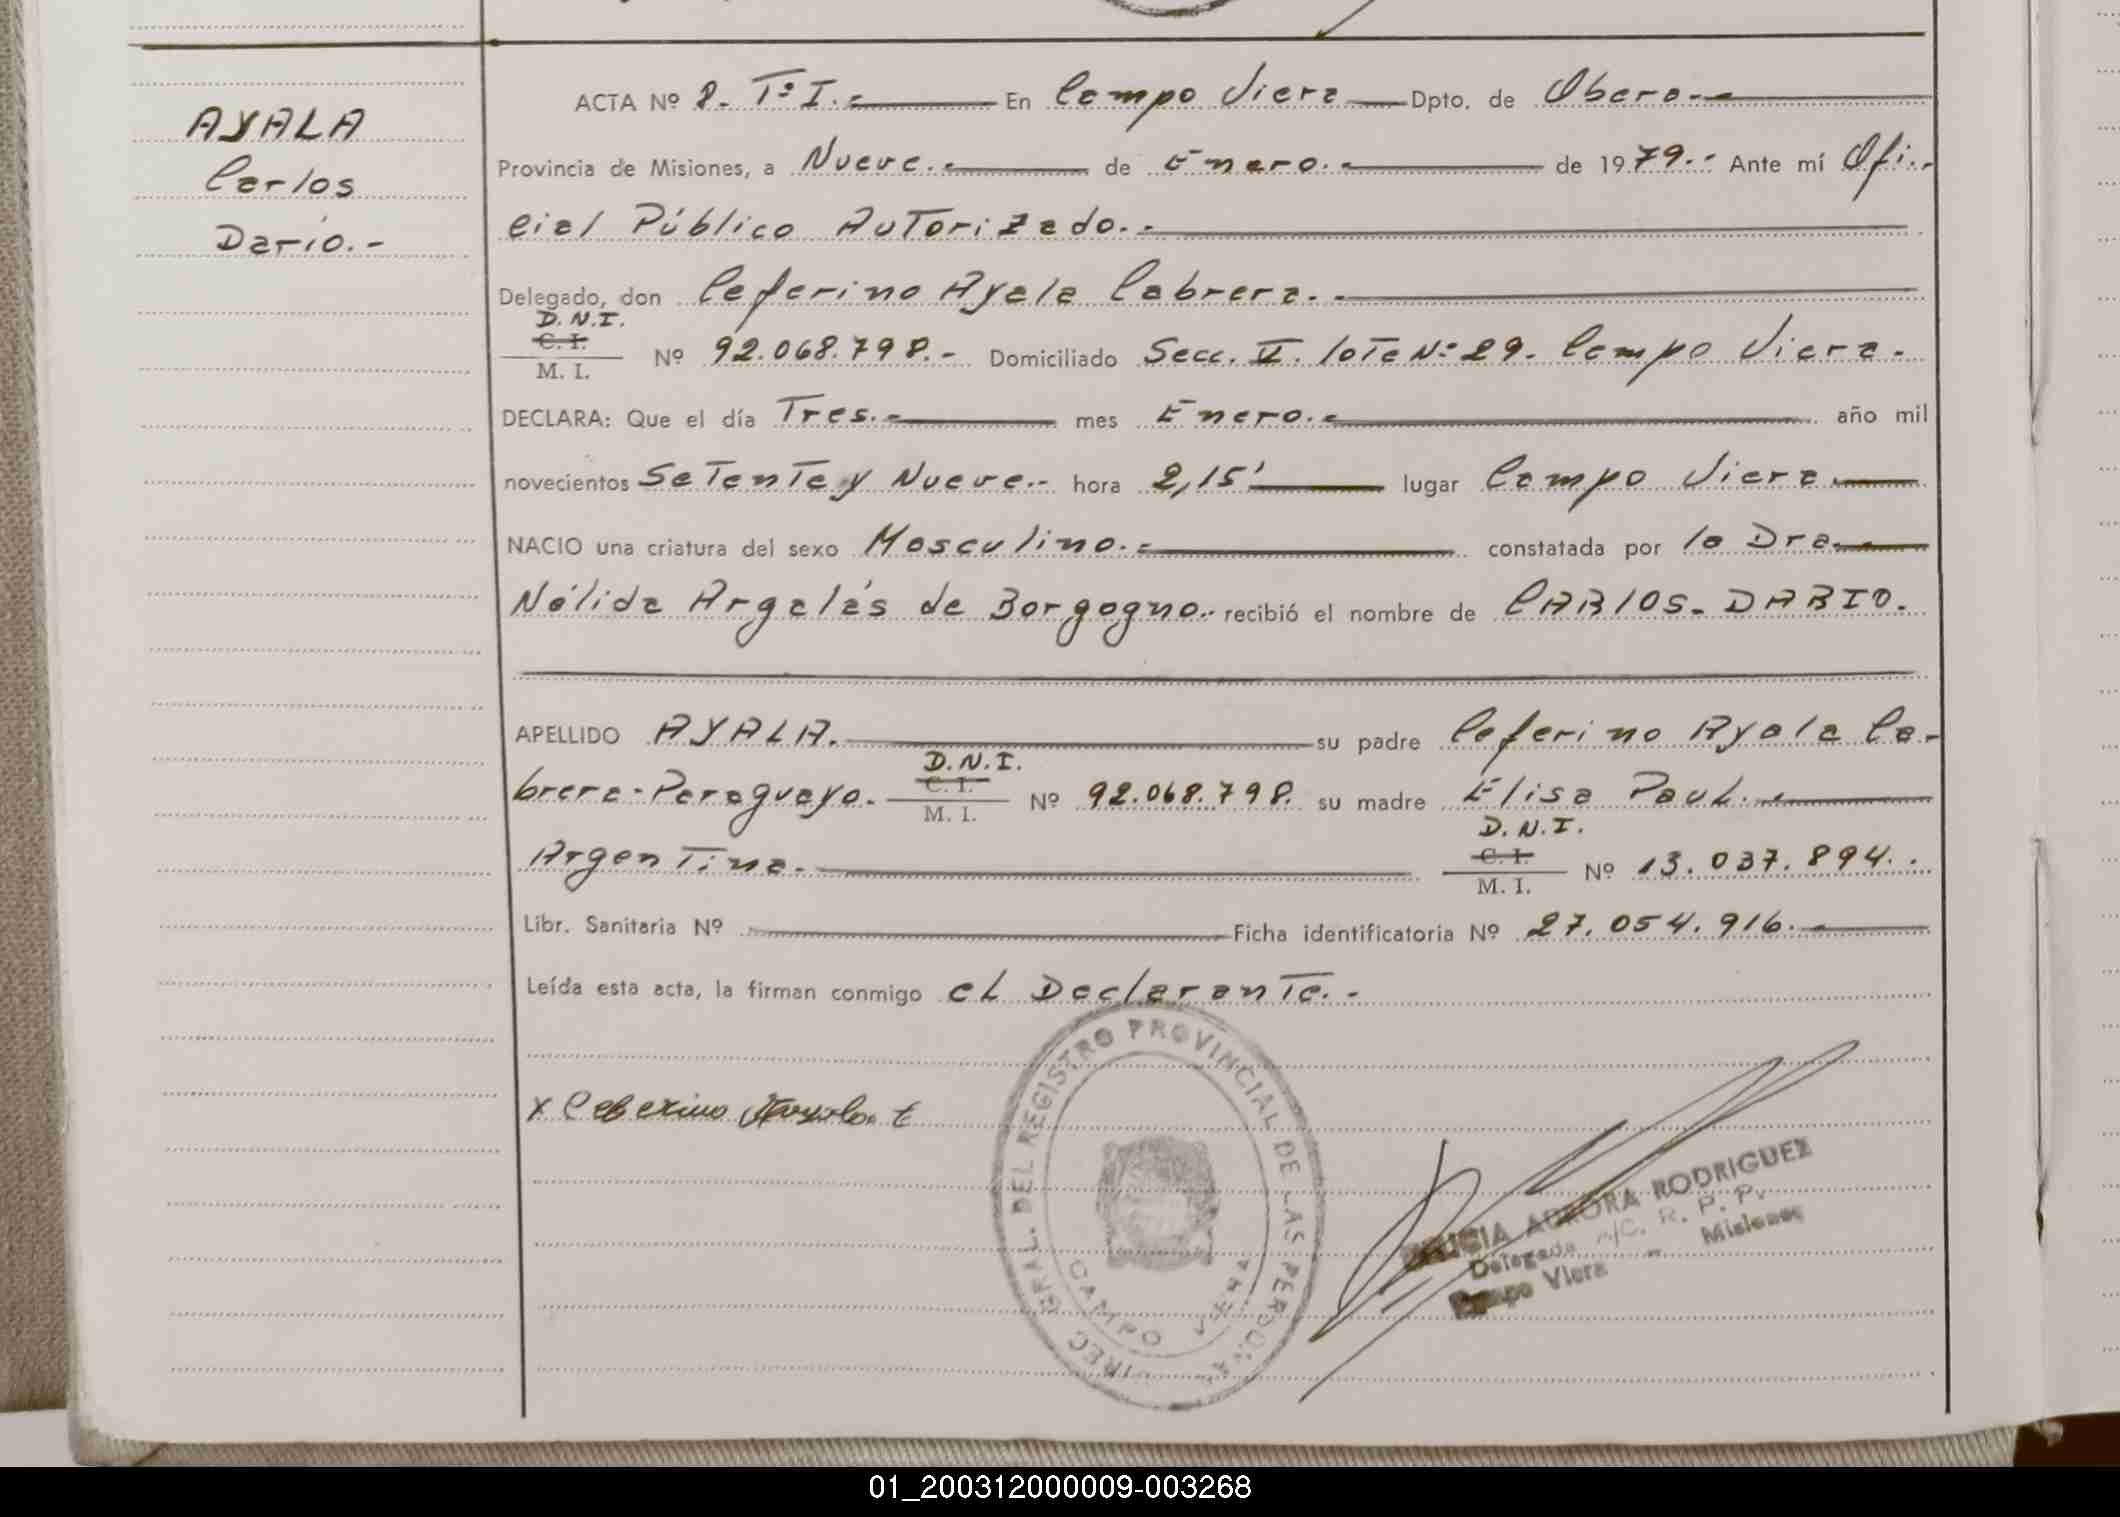 AYALA
Carlos
Darío.-
ACTA Nº 8. Tº I.- En Campo Viera Dpto. de Obera.-
Provincia de Misiones, a Nueve.- de Enero.- de 1979.- Ante mí Ofi-
cial Público Autorizado.-
Delegado, don Ceferino Ayala Cabrera.-
D.N.I.
C. I.
M. I.
Nº 92.068.798.- Domiciliado Secc. V. lote Nº 29. Campo Viera.
DECLARA: Que el día Tres.- mes Enero.- año mil
novecientos Setenta y Nueve.- hora 2,15' lugar Campo Viera
NACIO una criatura del sexo Masculino.- constatada por la Dra.
Nélida Argalás de Borgogno.- recibió el nombre de CARlOS-DARIO.
APELLIDO AYALA. su padre Ceferino Ayala Ca-
brera-Paraguayo. D.N.I. C. I. M. I. Nº 92.068.798. su madre Elisa Paul.-
Argentina. D.N.I. C. I. M. I. Nº 13.037.894..
Libr. Sanitaria Nº Ficha identificatoria Nº 27.054.916.-
Leída esta acta, la firman conmigo el Declarante.-
x Ceferino Ayala
GRAL. DEL REGISTRO PROVINCIAL DE LAS PERSONAS
CAMPO VIERA
AURORA RODRIGUEZ
Delegada A/C. R. P. P.
Campo Viera - Misiones
01_200312000009-003268